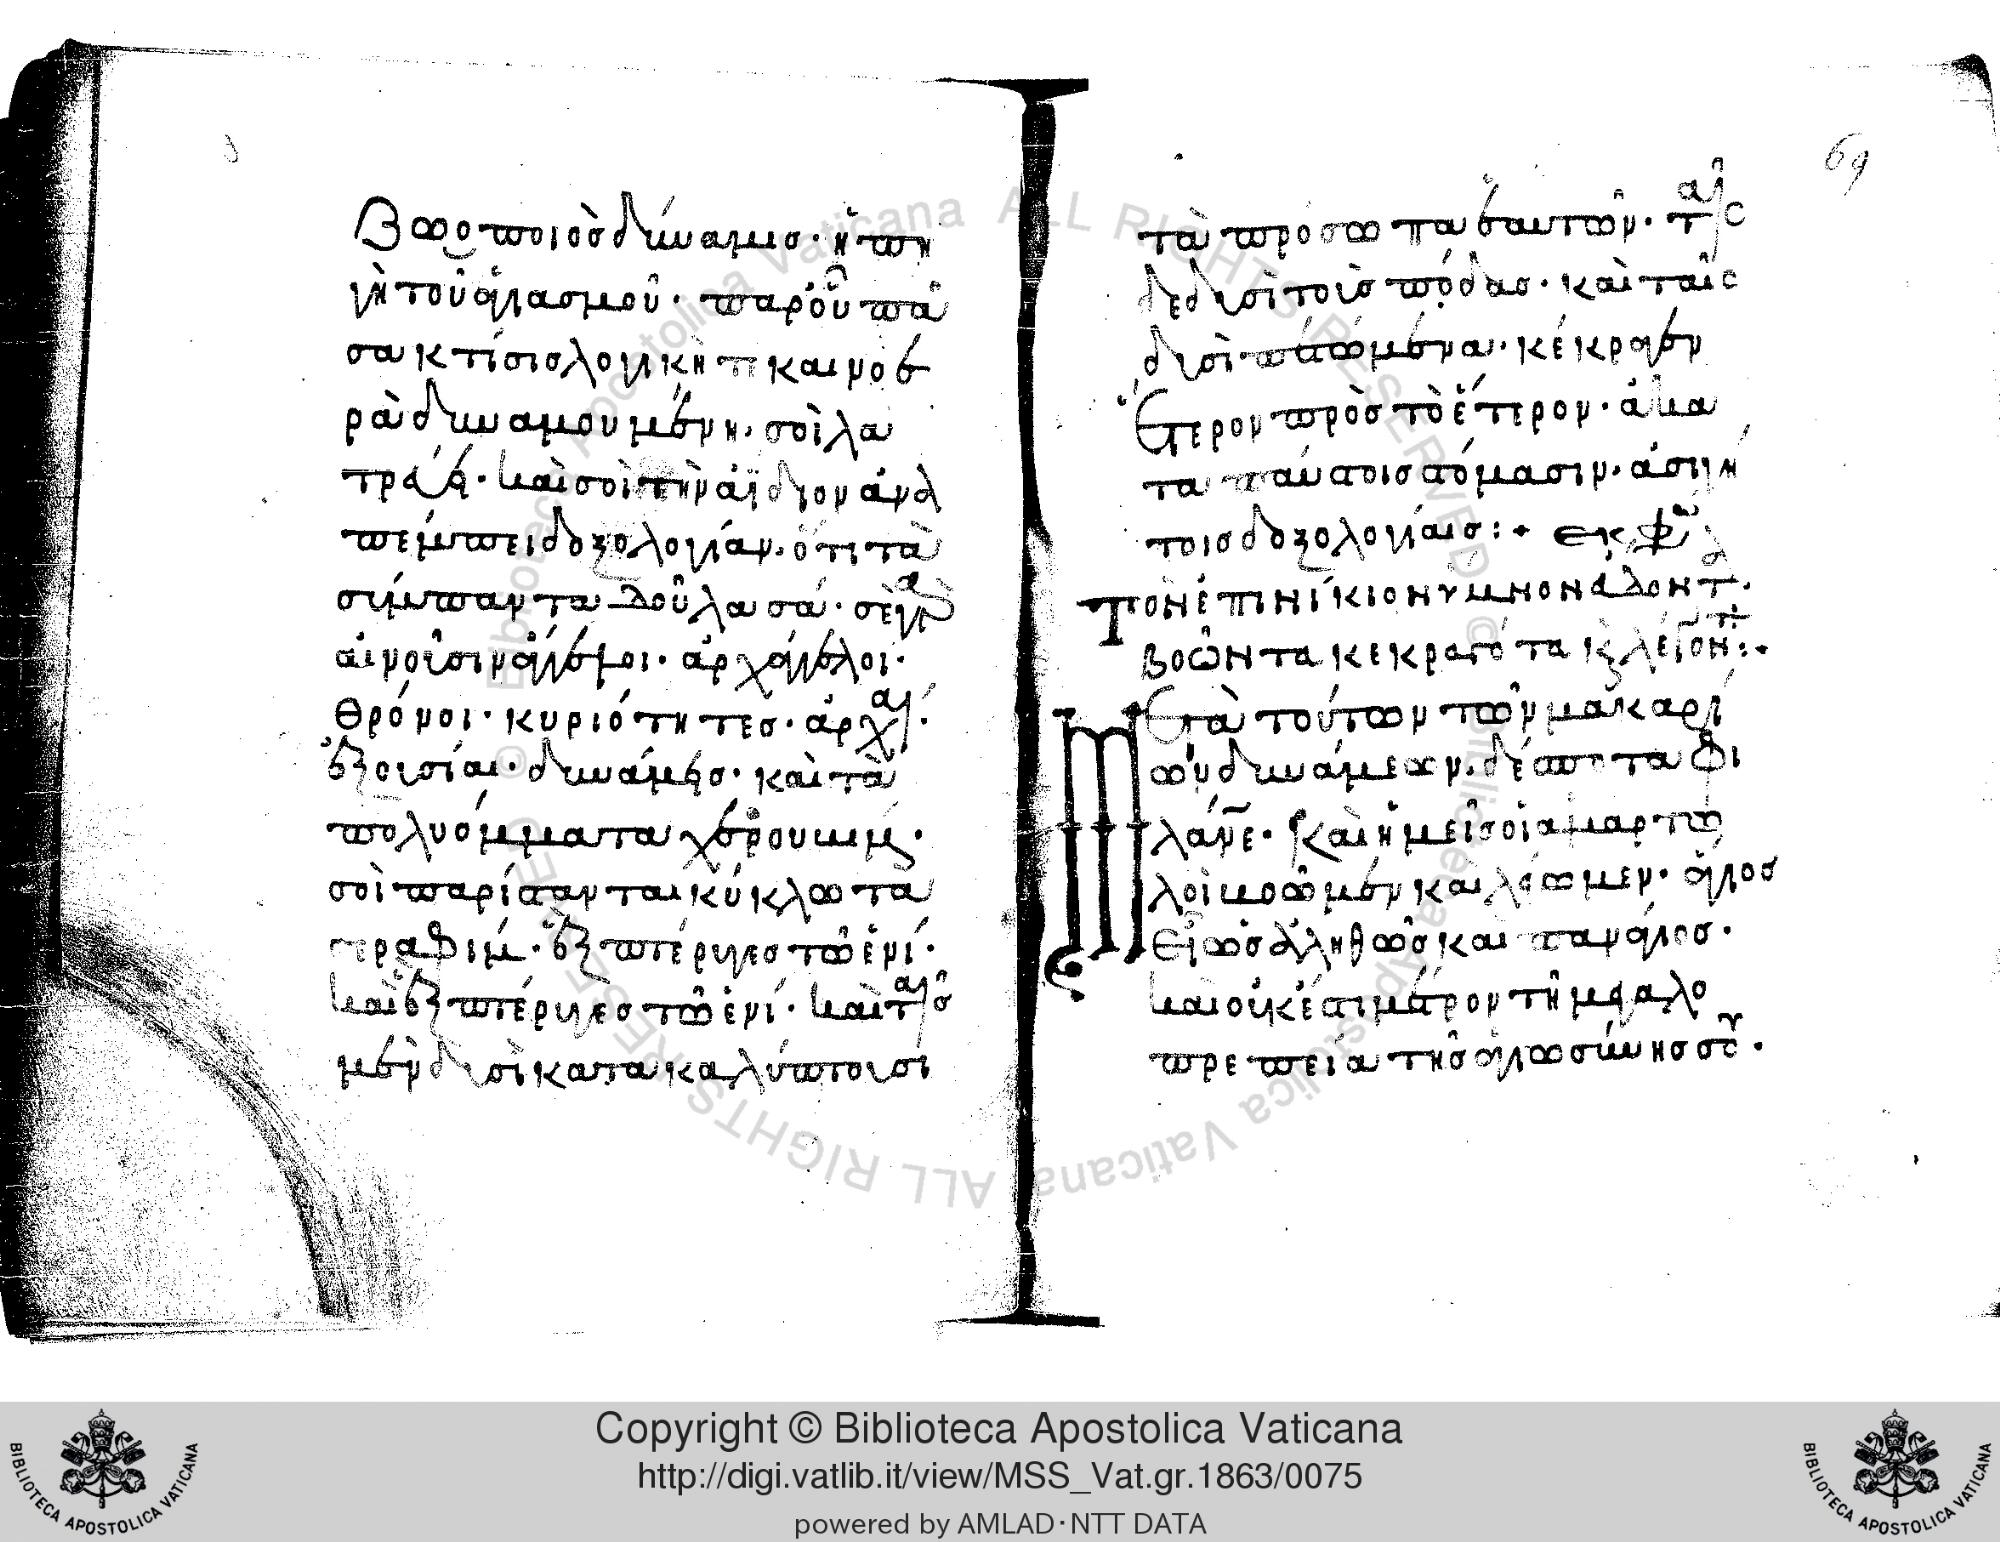 ζωοποιὸς δύναμις· ἡ πη
γὴ τοῦ ἁγιασμοῦ· παρ' οὗ πᾶ
σα κτίσις λογικὴ τ καὶ νοε
ρὰ δυναμουμένη· σοὶ λα
τρεύει· καὶ σοὶ τὴν ἀΐδιον ἀνα
πέμπει δοξολογίαν· ὅτι τὰ
σύμπαντα δοῦλα σά· σὲ γὰρ
αἰνοῦσιν ἄγγελοι· ἀρχάγγελοι·
θρόνοι· κυριότητες· ἀρχαί·
ἐξουσίαι· δυνάμεις· καὶ τὰ
πολυόμματα χερουβίμ·
σοὶ παρίστανται κύκλω τὰ
σεραφίμ· ἓξ πτέρυγες τῶ ἑνί·
καὶ ἓξ πτέρυγες τῶ ἑνί· καὶ ταῖς
μὲν δυσὶ κατακαλύπτουσι
69
τὰ πρόσωπα ἑαυτῶν· ταῖς
δὲ δυσὶ τοὺς πόδας· καὶ ταῖς
δυσὶ πετώμενα· κέκραγεν
ἕτερον πρὸς τὸ ἕτερον· ἀκα
ταπαύστοις στόμασιν· ἀσιγή
τοις δοξολογίαις: ἐκφω
Τὸν ἐπινίκιον ὕμνον ἄδοντ·
βοῶντα κεκραγότα κ λέγοντ:
Μετὰ τούτων τῶν μακαρί
ων δυνάμεων· δέσποτα φι
λάνε· καὶ ἡμεῖς οἱ ἁμαρτω
λοὶ βοῶμεν καὶ λέγωμεν· ἅγιος
εἶ ὡς ἀληθῶς καὶ πανάγιος·
καὶ οὐκ ἔστι μέτρον τῆ μεγαλο
πρεπεία τῆς ἁγιωσύνης σου·
Copyright © Biblioteca Apostolica Vaticana
http://digi.vatlib.it/view/MSS_Vat.gr.1863/0075
powered by AMLAD·NTT DATA
BIBLIOTECA APOSTOLICA VATICANA
BIBLIOTECA APOSTOLICA VATICANA
© Biblioteca Apostolica Vaticana ALL RIGHTS RESERVED © Biblioteca Apostolica Vaticana ALL RIGHTS RESERVED